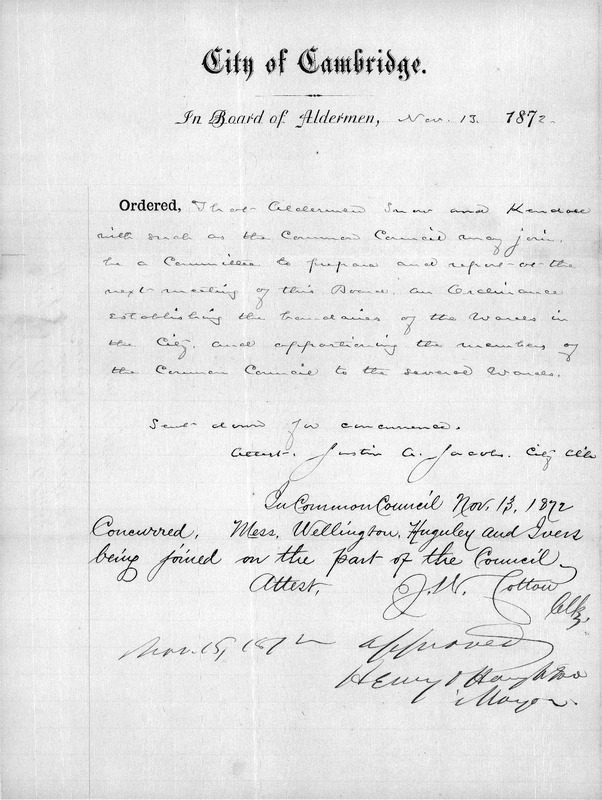 City of Cambridge.
In Board of Aldermen, Nov. 13. 1872.
Ordered, That Aldermen Snow and Kendall
with such as the Common Council may join,
be a Committee to prepare and report at the
next meeting of this Board, an Ordinance
establishing the boundaries of the Wards in
the City, and apportioning the members of
the Common Council to the several Wards.
Sent down for concurrence.
Attest. Justin A. Jacobs. City Clk
In Common Council Nov. 13, 1872
Concurred, Mess. Wellington, Huguley and Ivers
being joined on the part of the Council.
Attest, J. W. Cotton
Clk,
Nov. 15, 1872 approved
Henry O Houghton
Mayor.